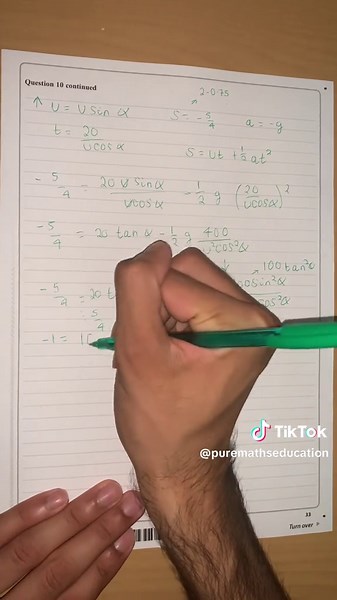 Question 10 continued
2-0.75
↑ U = U sin α   S = -5/4   a = -g
t = 20/Ucosα   S = Ut + 1/2 at²
-5/4 = 20 U sin α/Ucosα - 1/2 g (20/Ucosα)²
-5/4 = 20 tan α - 1/2 g 400/U²cos²α
-5/4 = 20 t
100tan²α
sin²α
cos²α
÷ 5/4
-1 = 1
TikTok
@puremathseducation
33
Turn over